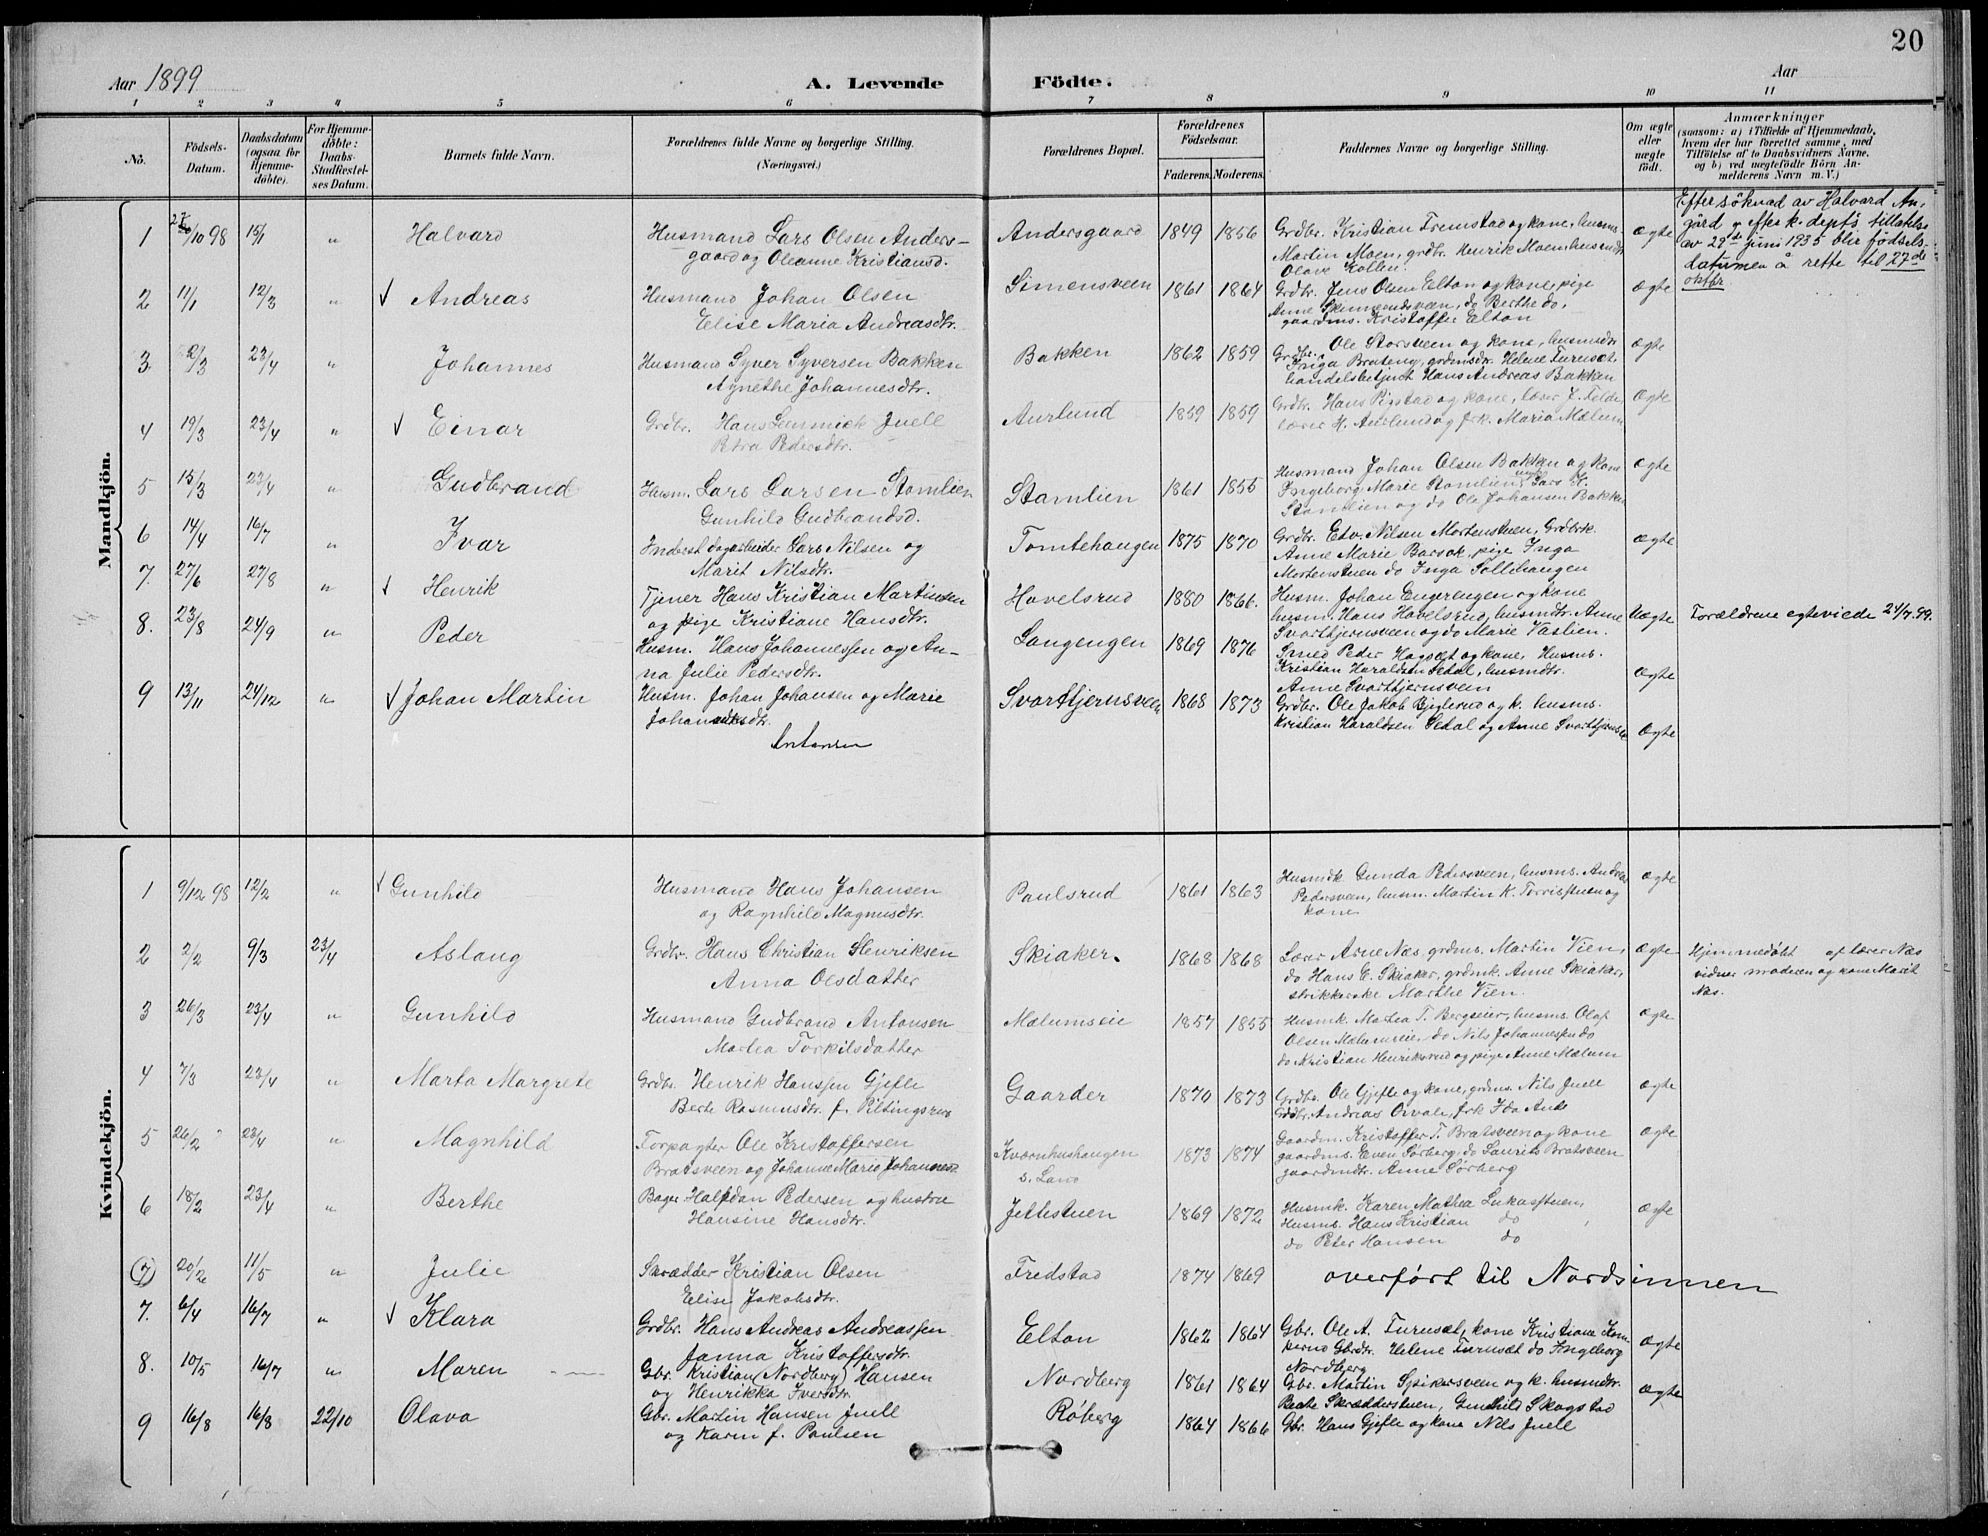 20
Aar 1899
A. Levende Födte.
Aar
1 2 3 4 5 6 7 8 9 10 11
No.
Födsels-Datum.
Daabsdatum (ogsaa for Hjemme-döbte).
For Hjemme-döbte: Daabs-Stadfæstel-ses Datum.
Barnets fulde Navn.
Forældrenes fulde Navne og borgerlige Stilling. (Næringsvei.)
Forældrenes Bopæl.
Forældrenes Födselsaar.
Faderens. Moderens.
Faddernes Navne og borgerlige Stilling.
Om ægte eller uægte födt.
Anmærkninger
(saasom: a) i Tilfælde af Hjemmedaab, hvem der har forrettet samme, med Tilföielse af to Daabsvidners Navne, og b) ved uægtefödte Börn An-melderens Navn m. V.)
Mandkjön.
1 27/10 98 15/1 " Halvard
Husmand Lars Olsen Anders-
gaard og Oleanne Kristiansd.
Andersgaard 1849 1856
Grdbr. Kristian Fremstad og kone, husms.
Martin Moen, grdbr. Henrik Moen husmdtr.
Olave Kollen.
ægte
Efter söknad av Halvard An-
gård og efter k. dept's tillatelse
av 22de juni 1935 blir födsels-
datumen å rette til 27de
oktbr.
2 11/1 12/3 " Andreas
Husmand Johan Olsen
Elise Maria Andreasdtr.
Simensveen 1861 1864
Grdbr. Jens Olsen Elton og kone, pige
Anne Simensveen, do Berthe do,
gaardms. Kristoffer Elton
ægte
3 2/3 23/4 " Johannes
Husmand Syver Syversen Bakken
Agnethe Johannesdtr.
Bakken 1862 1859
Grdbr. Ole Storsveen og kone, husmdtr
Inga Brateng, grdmsdtr. Helene Furuset.
handelsbetjent Hans Andreas Bakken
ægte
4 19/3 23/4 " Einar
Grdbr. Hans Lemmich Juell
Petra Pedersdtr.
Aurlund 1859 1859
Grdbr. Hans Rigstad og kone, lærer K. Felde,
lærer H. Aurlund og frk. Maria Mælum
ægte
5 15/3 23/4 " Gudbrand
Husm. Lars Larsen Stomlien
Gunhild Gudbrandsd.
Stamlien 1861 1855
Husmand Johan Olsen Bakken og kone
Ingeborg Marie Stomlien, Lars H.
Stamlien og do Ole Johansen Bakken
ægte
6 14/4 16/7 " Ivar
Inderst dagarbeider Lars Nilsen og
Marit Nilsdtr.
Tomtehaugen 1875 1870
Grdbr. Edv. Nilsen Mortenstuen, Grdbrk.
Anne Marie Barsok, pige Inga
Mortenstuen do Inga Sollihaugen
ægte
7 27/6 27/8 " Henrik
Tjener Hans Kristian Martinsen
og pige Kristiane Hansdtr.
Hovelsrud 1880 1866.
Husm. Johan Engerengen og kone
husm. Hans Hovelsrud, husmdtr. Anne
Svarttjernsveen og do Marie Vaslien.
Uægte
Forældrene egteviede 24/7.99.
8. 23/8 24/9 " Peder
Husm. Hans Johannessen og An-
na Julie Pedersdtr.
Langengen 1869 1876
Smed Peder Hagset og kone, Husms.
Kristian Haraldsen Sedal, husmdtr.
Anne Svarttjernsveen
ægte
9 13/11 24/12 " Johan Martin
Husm. Johan Johansen og Marie
Johansdtr.
Antonsen
Svarttjernsveen 1868 1873
Grdbr. Ole Jakob Bjiglerud og k. husms.
Kristian Haraldsen Sedal og Anne Svarttjernsv.
ægte
Kvindekjön.
1 9/12 98 12/2 " Gunhild
Husmand Hans Johansen
og Ragnhild Magnusdtr.
Paulsrud 1861 1863
Husmk. Gunda Pedersveen, husms. Andreas
Pedersveen, husm. Martin K. Torristuen og
kone
ægte
2 2/2 9/3 23/4 Aslaug
Grdbr. Hans Christian Henriksen
Anna Olsdatter
Skiaker. 1863 1868
Lærer Arne Næs, grdms. Martin Vien,
do Hans E. Skiaker, grdmk. Anne Skiaker,
strikkerske Marthe Vien.
ægte
Hjemmedøbt af lærer Næs
vidner moderen og kone Marit
Næs.
3 26/3 23/4 " Gunhild
Husmand Gudbrand Antonsen
Martea Torkilsdatter
Mælumseie 1857 1855
Husmk. Martea T. Bergseier, husms. Olaf
Olsen Mælumseie, do Nils Johannessen do
do Kristian Henriksrud og pige Anne Mælum
ægte
4 7/3 23/4 " Marta Margrete
Grdbr. Henrik Hanssen Gjefle
Berte Rasmusdtr. f. Piltingsrud
Gaarder 1870 1873
Grdbr. Ole Gjefle og kone, grdms. Nils Juell
Grdbr. Andreas Orvale, frk Ida Aule
ægte
5 26/2 23/4 " Magnhild
Forpagter Ole Kristoffersen
Bratsveen og Johanne Marie Johannesd.
Kværnhushaugen
s. Land
1873 1874
Gaardm. Kristoffer T. Bratsveen og kone
gaardms. Even Sørberg, do Laurits Bratsveen
gaardmdtr. Anne Sørberg
ægte
6 18/2 23/4 " Berthe
Bager Halfdan Pedersen og hustru
Hansine Hansdtr.
Jettestuen 1869 1872
Husmk. Karen Mathea Lukasstuen,
Husms. Hans Kristian do,
do Peter Hansen do
ægte
(7) 20/2 11/5 " Julie
Skrædder Kristian Olsen
Elise Jakobsdtr.
Fredstad 1874 1869
overført til Nordsinnen
7. 6/4 16/7 " Klara
Grdbr. Hans Andreas Andreassen
Janna Kristoffersdtr.
Elton 1862 1864
Gbr. Ole A. Furuset, kone Kristiane Kom-
perud Gbrdtr. Helene Furuset do Ingeborg
Nordberg
ægte
8. 10/5 16/7 " Maren
Gbr. Kristian (Nordberg) Hansen
og Henrikka Iversdtr.
Nordberg 1861 1864
Gbr. Martin Spikersveen og k. husmdtr.
Beate Skrædderstuen, Gunhild Skogstad
ægte
9 16/8 16/8 22/10 Olava
Gbr. Martin Hansen Juell
og Karen f. Paulsen
Røberg 1864 1866
Gbr. Hans Gjefle og kone Nils Juell